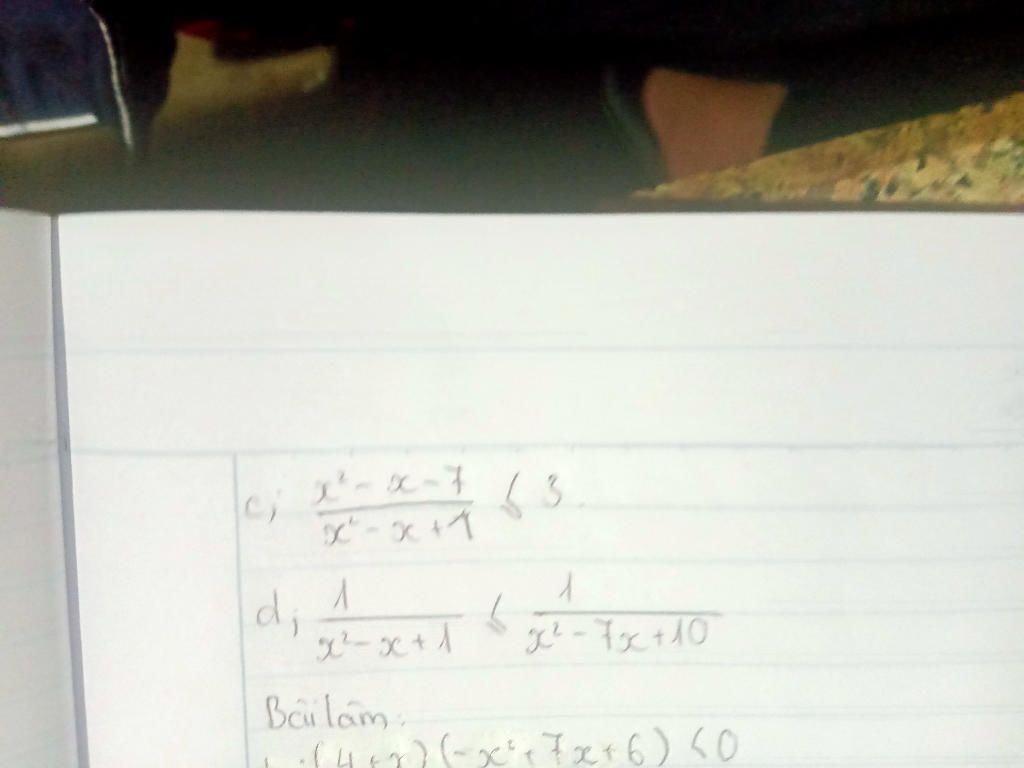 c; x² - x - 7 / x² - x + 1 ≤ 3.
d; 1 / x² - x + 1 ≤ 1 / x² - 7x + 10
Bài làm:
(4+x)(-x²+7x+6) <0